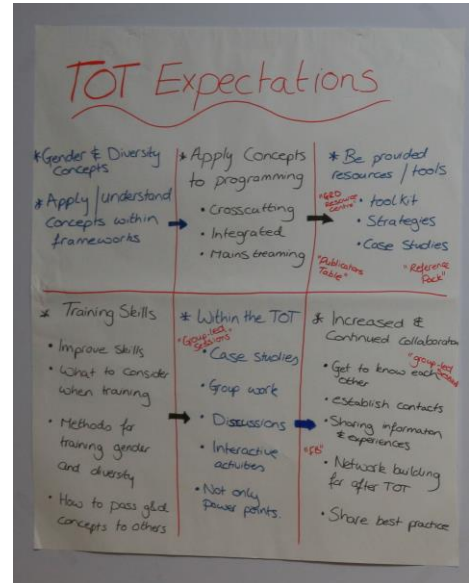 TOT Expectations
* Gender & Diversity
Concepts
* Apply/understand
Concepts within
frameworks
* Apply Concepts
to programming
• Crosscutting
• Integrated
• Mainstreaming
* Be provided
resources / tools
"G&D
Resource
centre"
• toolkit
• Strategies
• Case Studies
"Publications
Table"
"Reference
Pack"
* Training Skills
• Improve Skills
• What to consider
when training
• Methods for
training gender
and diversity
• How to pass g&d
concepts to others
* Within the TOT
"Group-led
Sessions"
• Case Studies
• Group work
• Discussions
• Interactive
activities
• Not only
power points.
* Increased &
Continued Collaboration
"group-led
• Get to know each
other
• establish contacts
• Sharing information
& experiences
"FB"
• Network building
for after TOT
• Share best practice